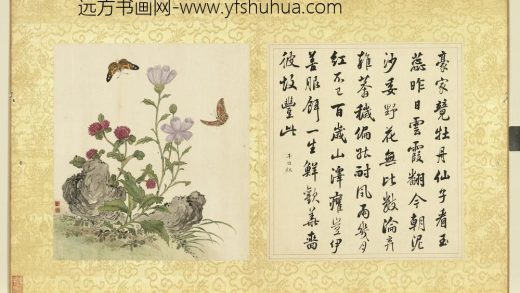 远方书画网-www.yfshuhua.com
豪家競牡丹仙子看玉
蕊昨日雲霞翻今朝泥
沙委野花無比數淪弃
雜穢偏能耐風雨
紅不已百歲山澤癯豈伊
善服餌一生鮮歡華嗇
彼故豐此